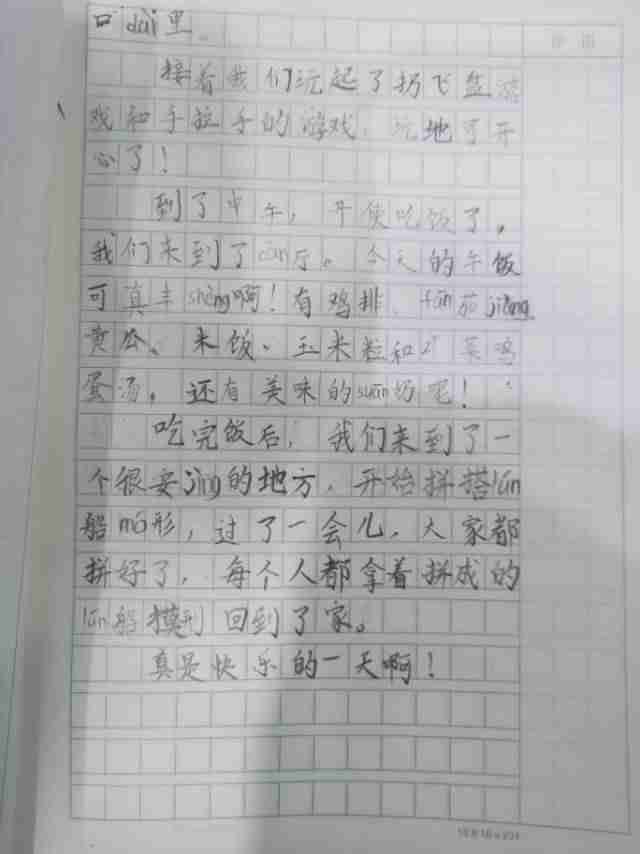 口dài里。
接着我们玩起了扔飞盘游
戏和手拉手的游戏，玩地可开
心了！
到了中午，开使吃饭了，
我们来到了cān厅。今天的午饭
可真丰shèng啊！有鸡排、fān茄jiàng
黄瓜、米饭、玉米粒和 菜鸡
蛋汤，还有美味的suān奶呢！
吃完饭后，我们来到了一
个很安jìng的地方，开始拼搭lún
船mó形，过了一会儿，大家都
拼好了，每个人都拿着拼成的
lún船模形回到了家。
真是快乐的一天啊！